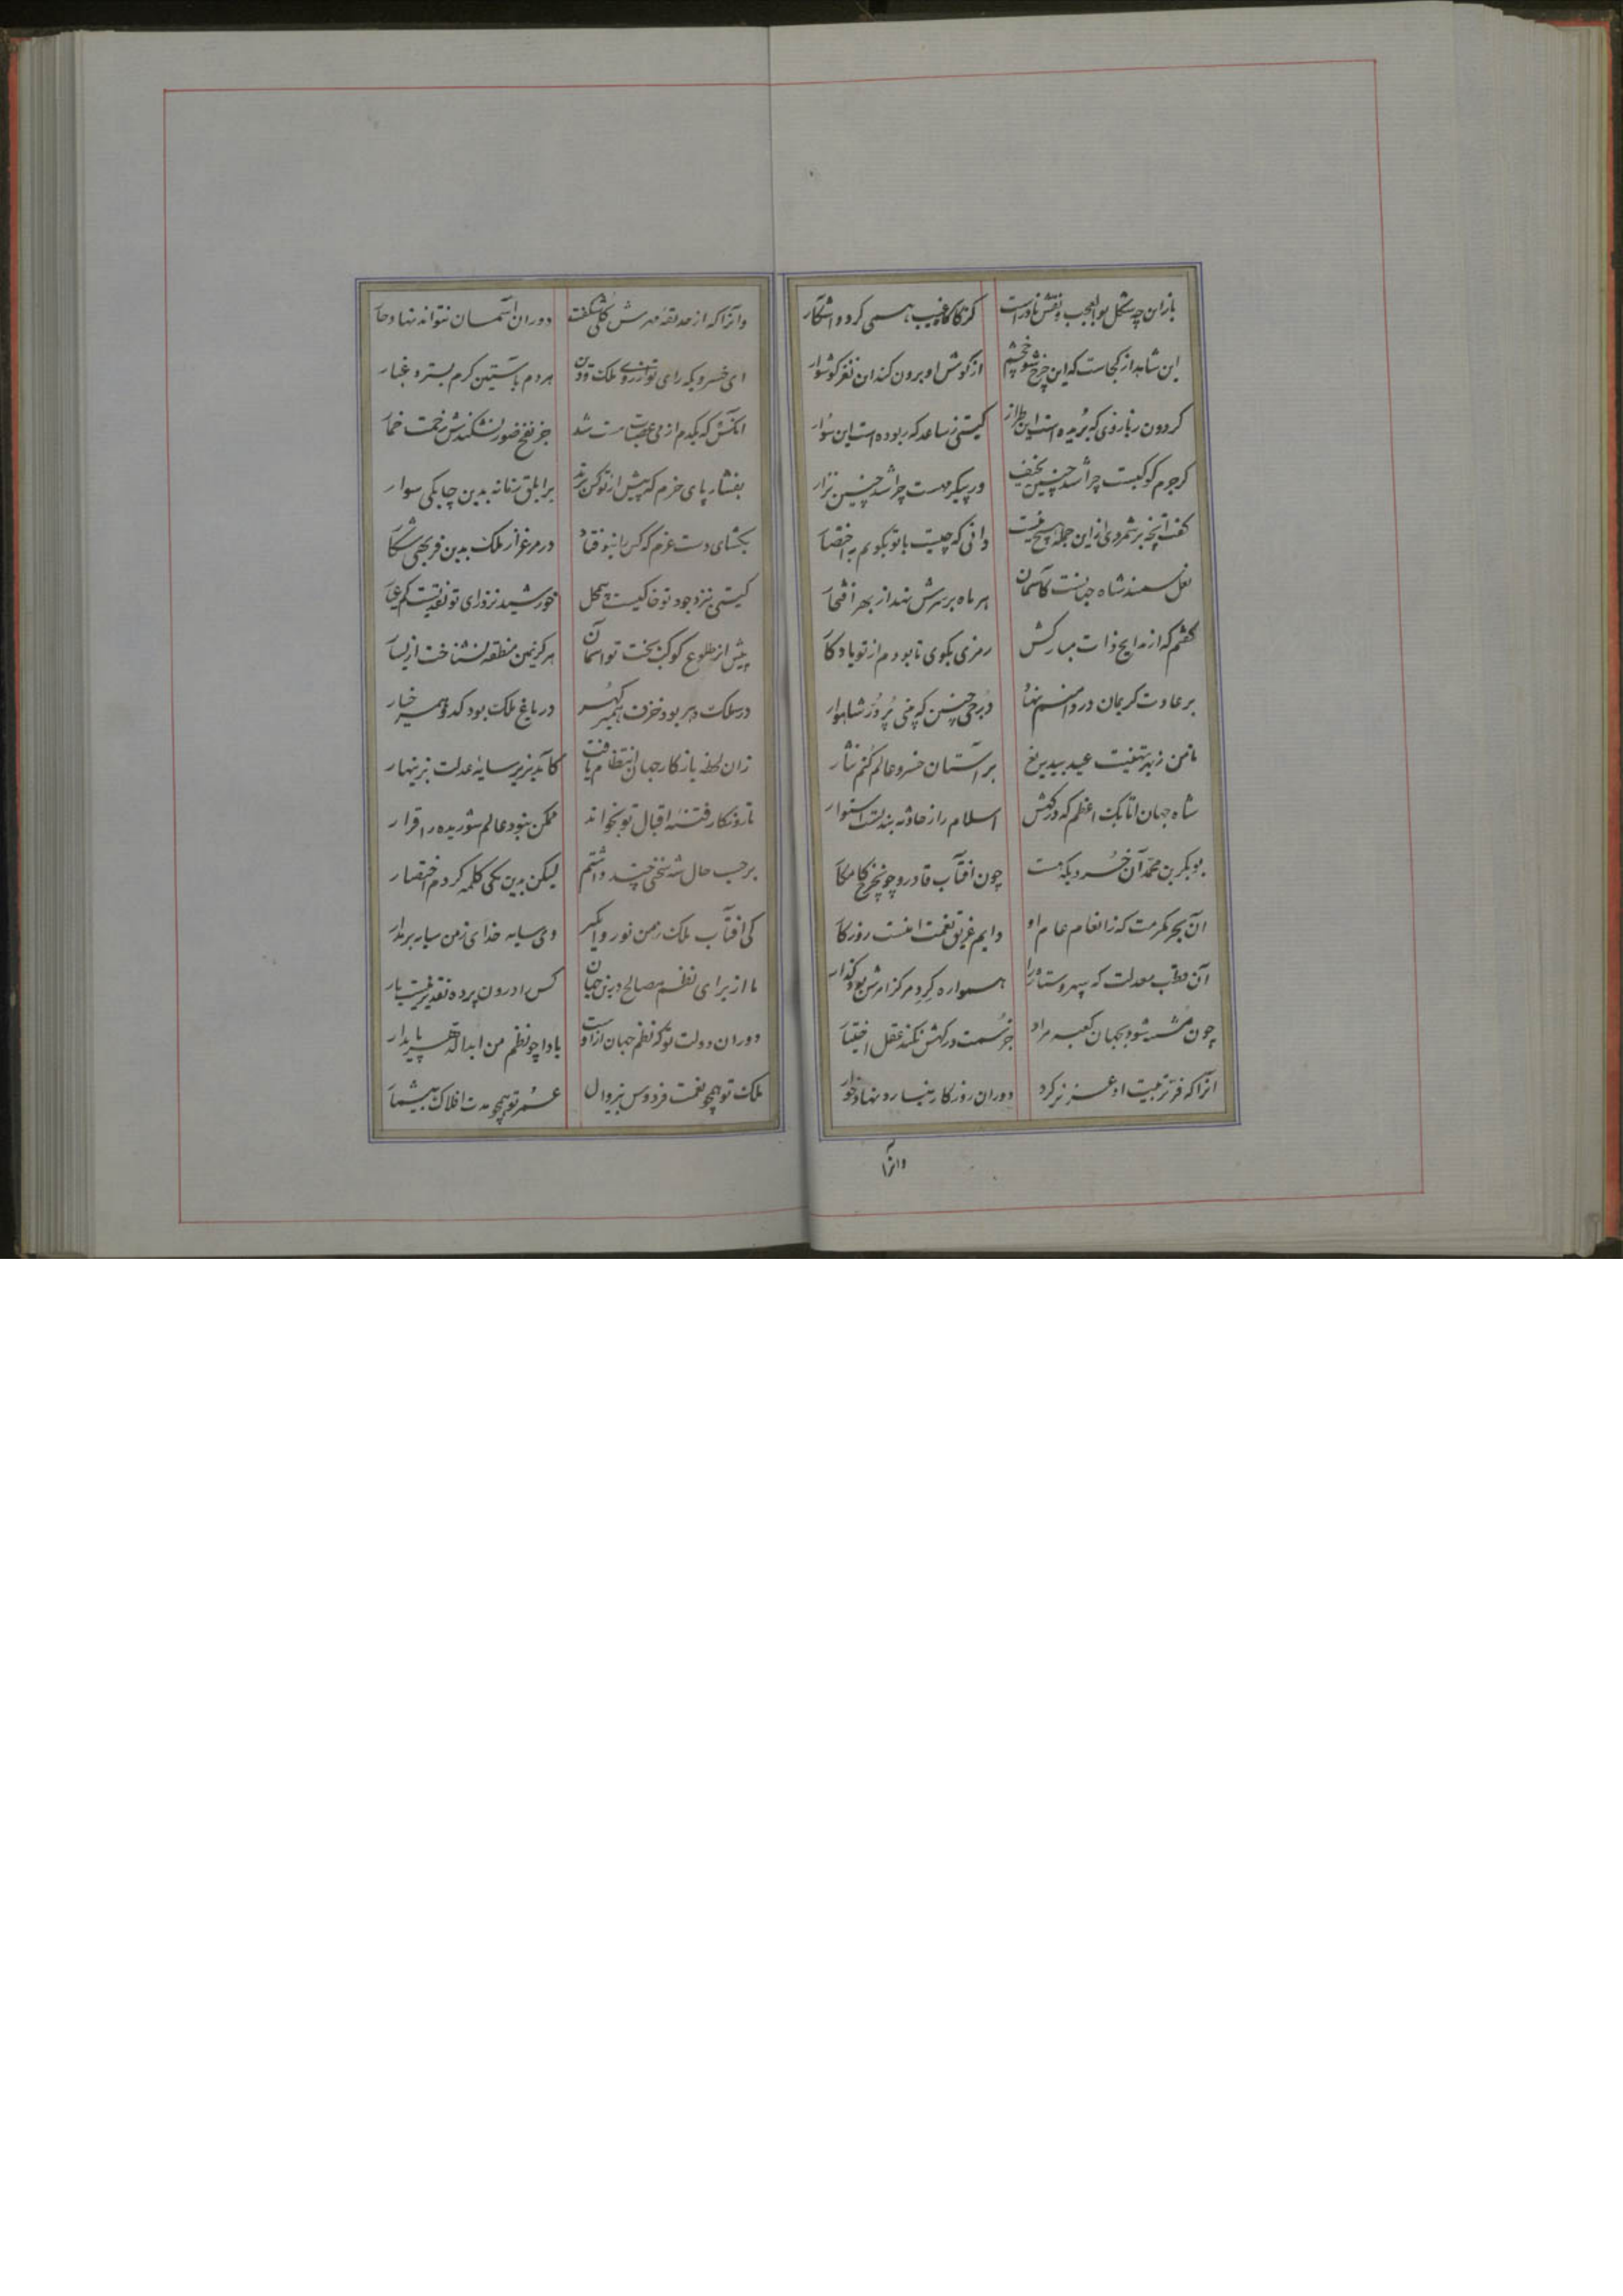 باز این چه شکل بوالعجب و نقش نادر است کز کارگاه غیب همی گردد آشکار
این شاهد از کجاست که این چرخ شوخ چشم از گوش او برون کند این نغز گوشوار
گردون ز بازوی که بریده است این طراز گیتی ز ساعد که ربوده است این سوار
گر جرم کوکبست چرا شد چنین نحیف ور پیکر مهست چرا شد چنین نزار
گفت آنچه بر شمردی ازین جمله هیچ نیست دانی که چیست با تو بگویم به اختصار
نعل سمند شاه جهانست کاسمان هر ماه بر سرش نهد از بهر افتخار
گفتم که از مدایح ذات مبارکش رمزی بگوی تا بودم از تو یادگار
بر عادت کریمان در دامنم نهاد درجی چنین که بینی پر در شاهوار
تا من ز بهر تهنیت عید بیدریغ بر آستان خسرو عالم کنم نثار
شاه جهان اتابک اعظم که درگهش اسلام را ز حادثه بندیست استوار
بوبکر بن محمد آن خسرویکه هست چون آفتاب قادر و چون چرخ کامکار
آن بحر مکرمت که ز انعام عام او دایم غریق نعمت امنست روزگار
آن قطب معدلت که سپهر و ستاره را همواره گرد مرکز امرش بود مدار
چون مشتبه شود بجهان کعبه مراد جز سمت درگهش نکند عقل اختیار
آنرا که فر تربیت او عزیز کرد دوران روزگار نیارد نهاد خوار
وانرا
وانرا که از حدیقه مهرش گلی شگفت دوران آسمان نتواند نهاد خار
ای خسرویکه رای تو از روی ملک و دین هر دم بآستین کرم بسترد غبار
آنکس که یکدم از می عصیانت مست شد جز نفخ صور نشکندش زحمت خمار
بفشار پای حزم که پیش از تو کس نزد بر ابلق زمانه بدین چابکی سوار
بگشای دست عزم که کس را نیوفتاد در مرغزار ملک بدین فربهی شکار
گیتی بنزد جود تو خاکیست بی محل خورشید نزد رای تو نقدیست کم عیار
پیش از طلوع کوکب بخت تو آسمان هرگز یمین منطقه نشناخت از یسار
در سلک دهر بود خزف همبر گهر در باغ ملک بود کدو همسر خیار
زان لحظه باز کار جهان انتظام یافت کآمد بزیر سایه عدلت بزینهار
تا رونگار فتنه اقبال تو نخواند ممکن نبود عالم شوریده را قرار
بر حسب حال شه سخنی چند داشتم لیکن بدین یکی کلمه کردم اختصار
کی آفتاب ملک ز من نور وامگیر وی سایه خدای ز من سایه برمدار
ما از برای نظم مصالح درین جهان کس را درون پرده تقدیر نیست بار
دوران دولت تو که نظم جهان ازوست بادا چو نظم من ابد الدهر پایدار
ملک تو همچو نعمت فردوس بیزوال عمر تو همچو مدت افلاک بیشمار